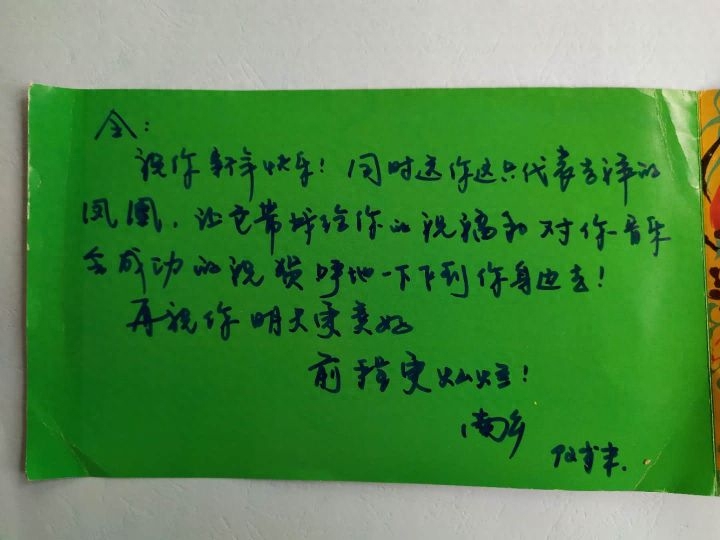 全：
祝你新年快乐！同时送你这只代表吉祥的
凤凰，让它带好给你的祝福和对你音乐
会成功的祝贺呼地一下飞到你身边去！
再祝你明天更美好
前程更灿烂！
南乡